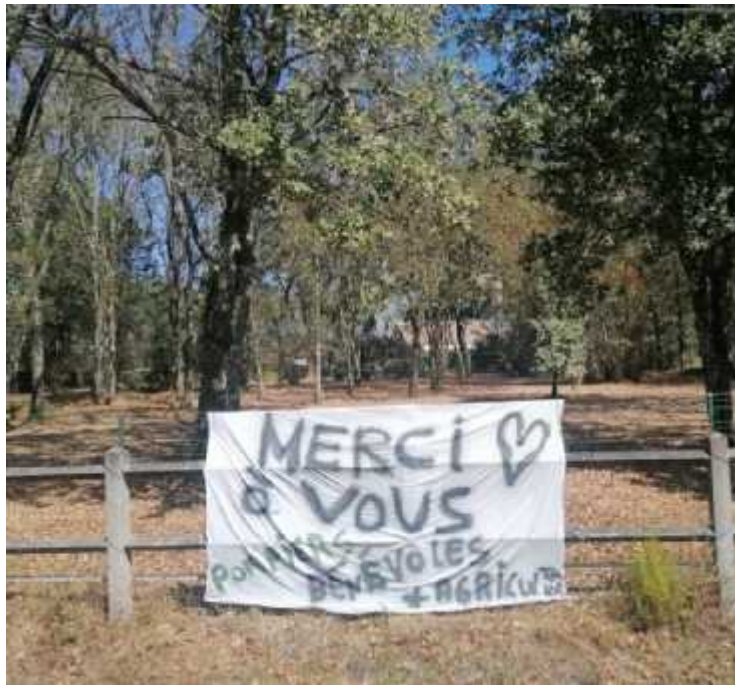 MERCi
à VOUS
POMPIERS
BENEVOLES
+ AGRICU